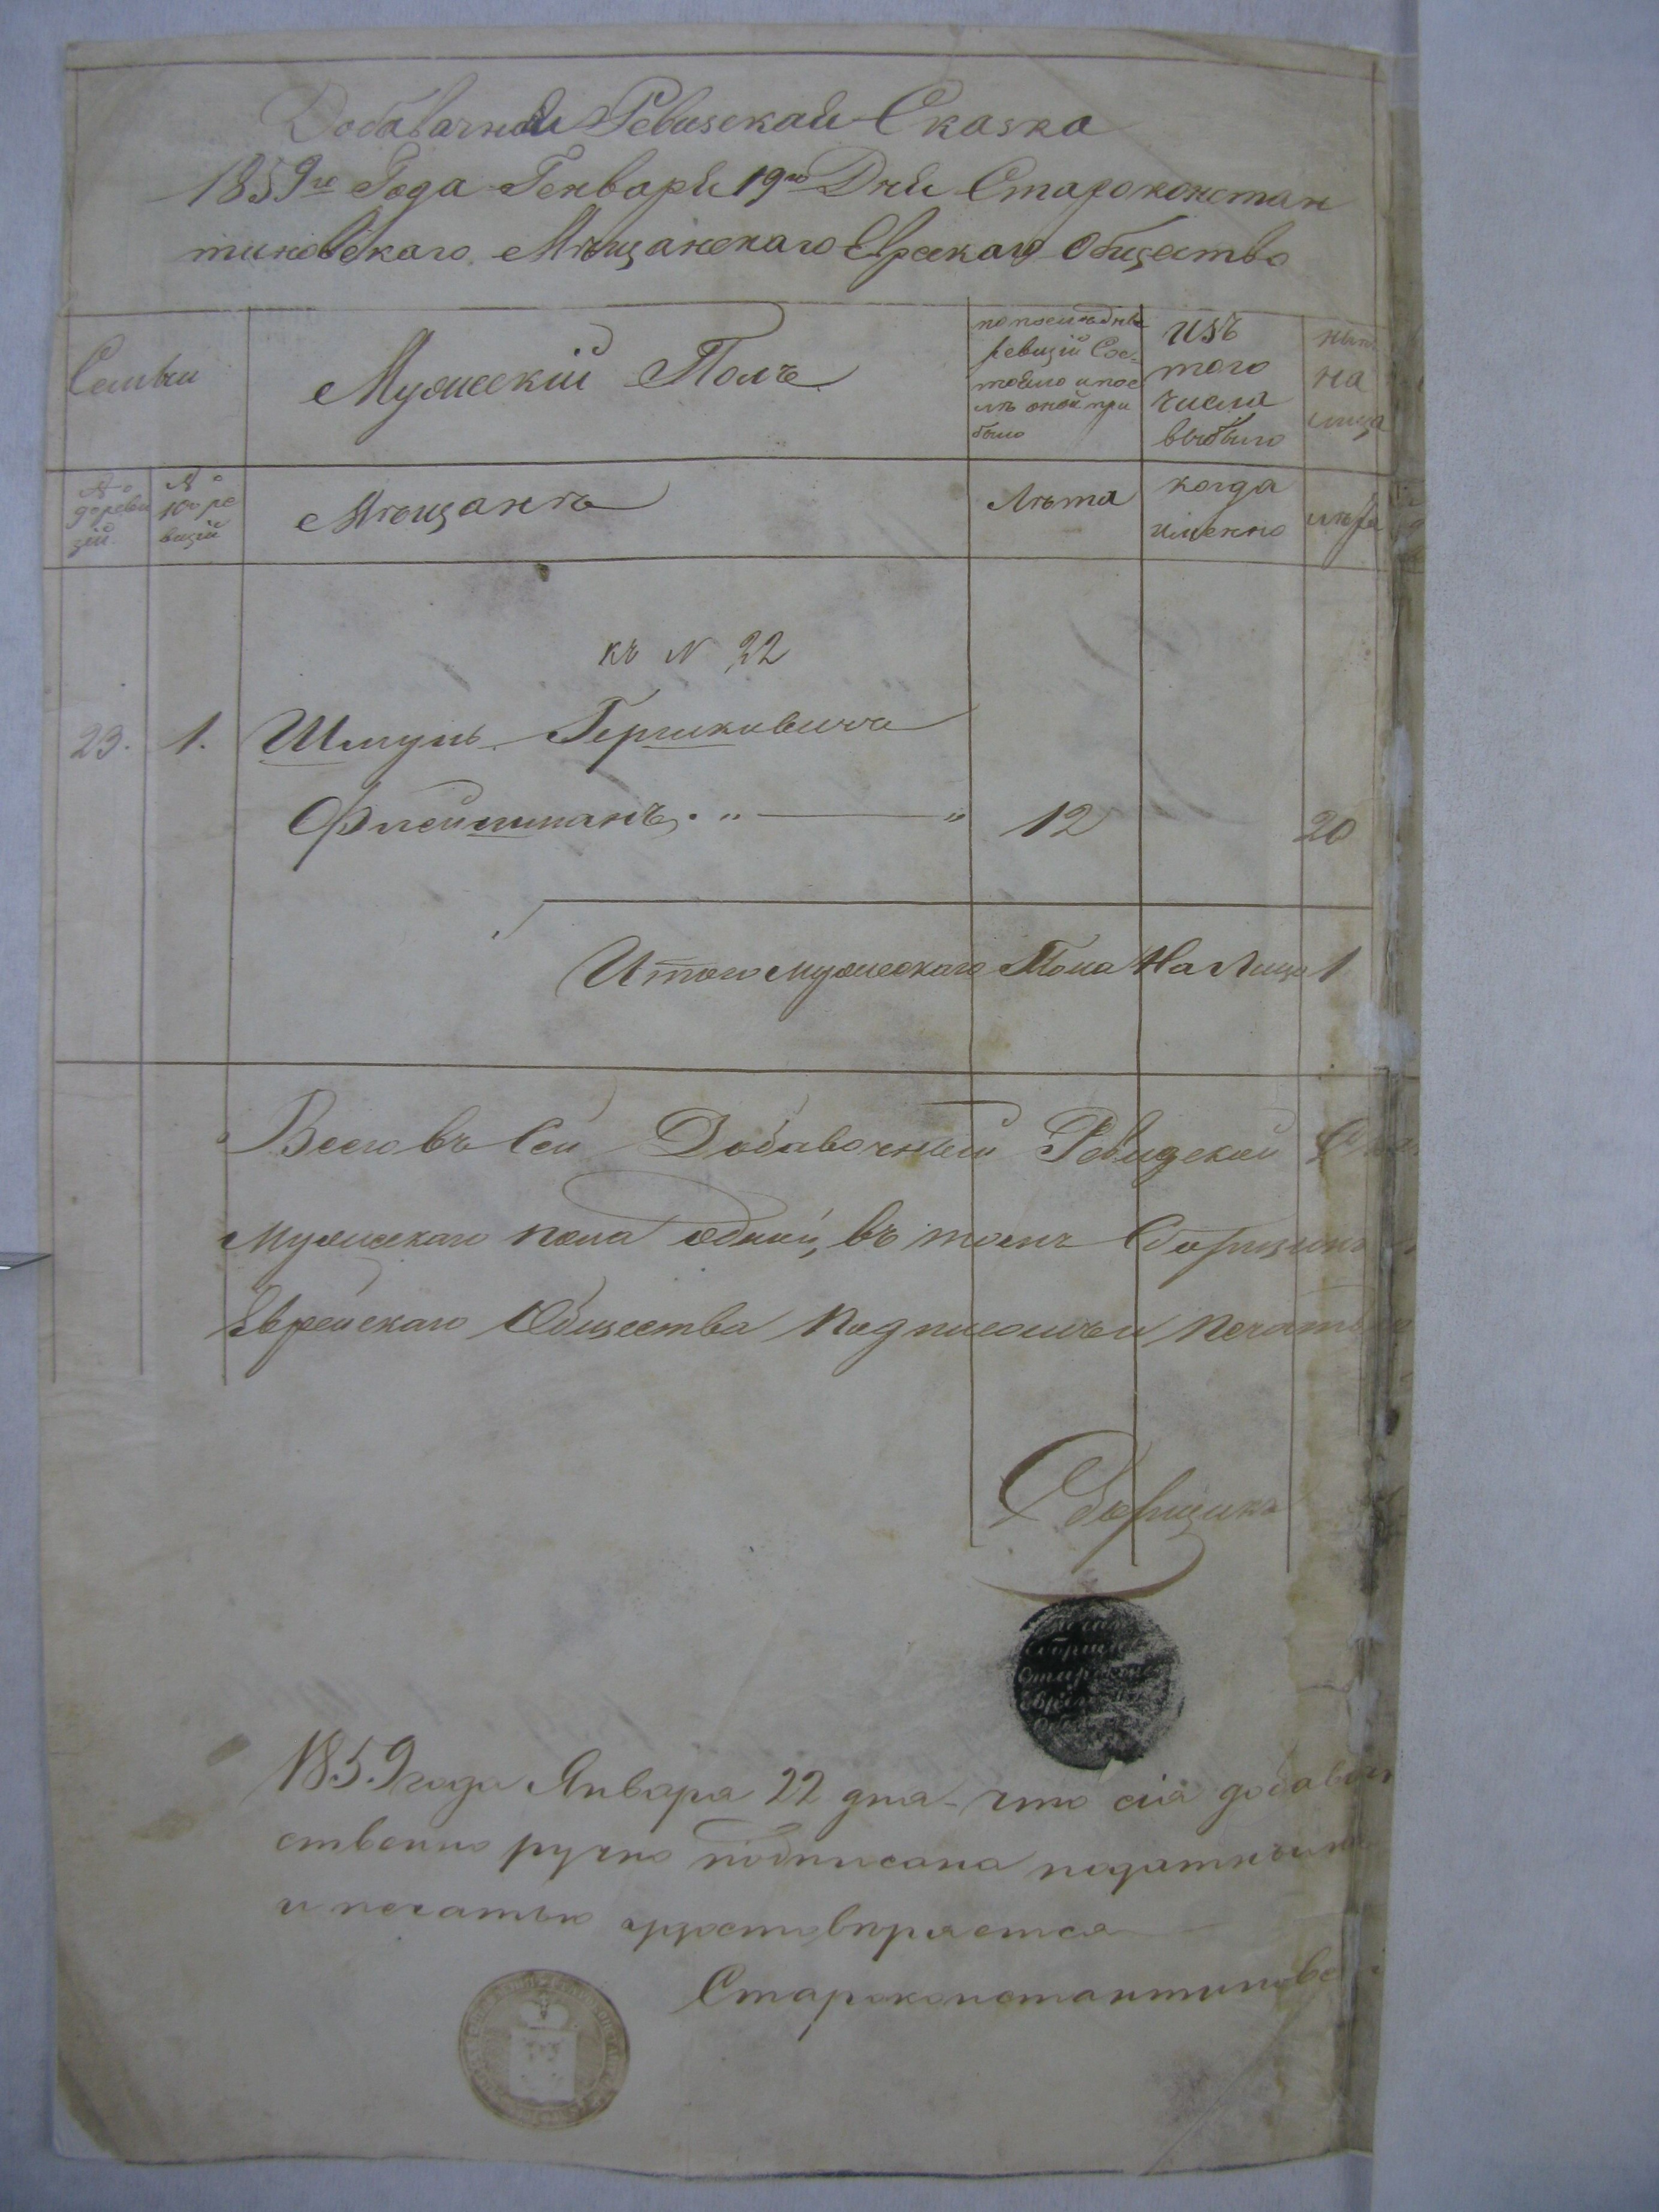 Добавачная Ревизская Сказка
1859го Года Генваря 19го Дня Староконстан
тиновскаго Мѣщанскаго Еврскаго Общества
Семьи
Мужескій Полъ
по последнѣ
ревизіи Сос-
тояло и пос
лѣ оной при
было
изъ
того
числа
выбыло
на
лица
№
9 ревы
зіи
№
10 ре
визіи
Мѣщанъ
Лѣта
когда
именно
лѣта
къ N 22
23. 1. Шмуль Гершковичъ
Флейшманъ 12 20
Итого мужескаго Пола На Лицо 1
Всего въ Сей Добавочный Ревидской
Мужескаго пола одинъ, въ томъ Сборщикъ
Еврейскаго Общества подписомъ и печать
Сборщикъ
Сборщи
Староконс
Еврей
1859 года Января 22 дня что сія добавоч
ственно ручно подписана податнымъ
и печатью удостовѣряется
Староконстантиновс